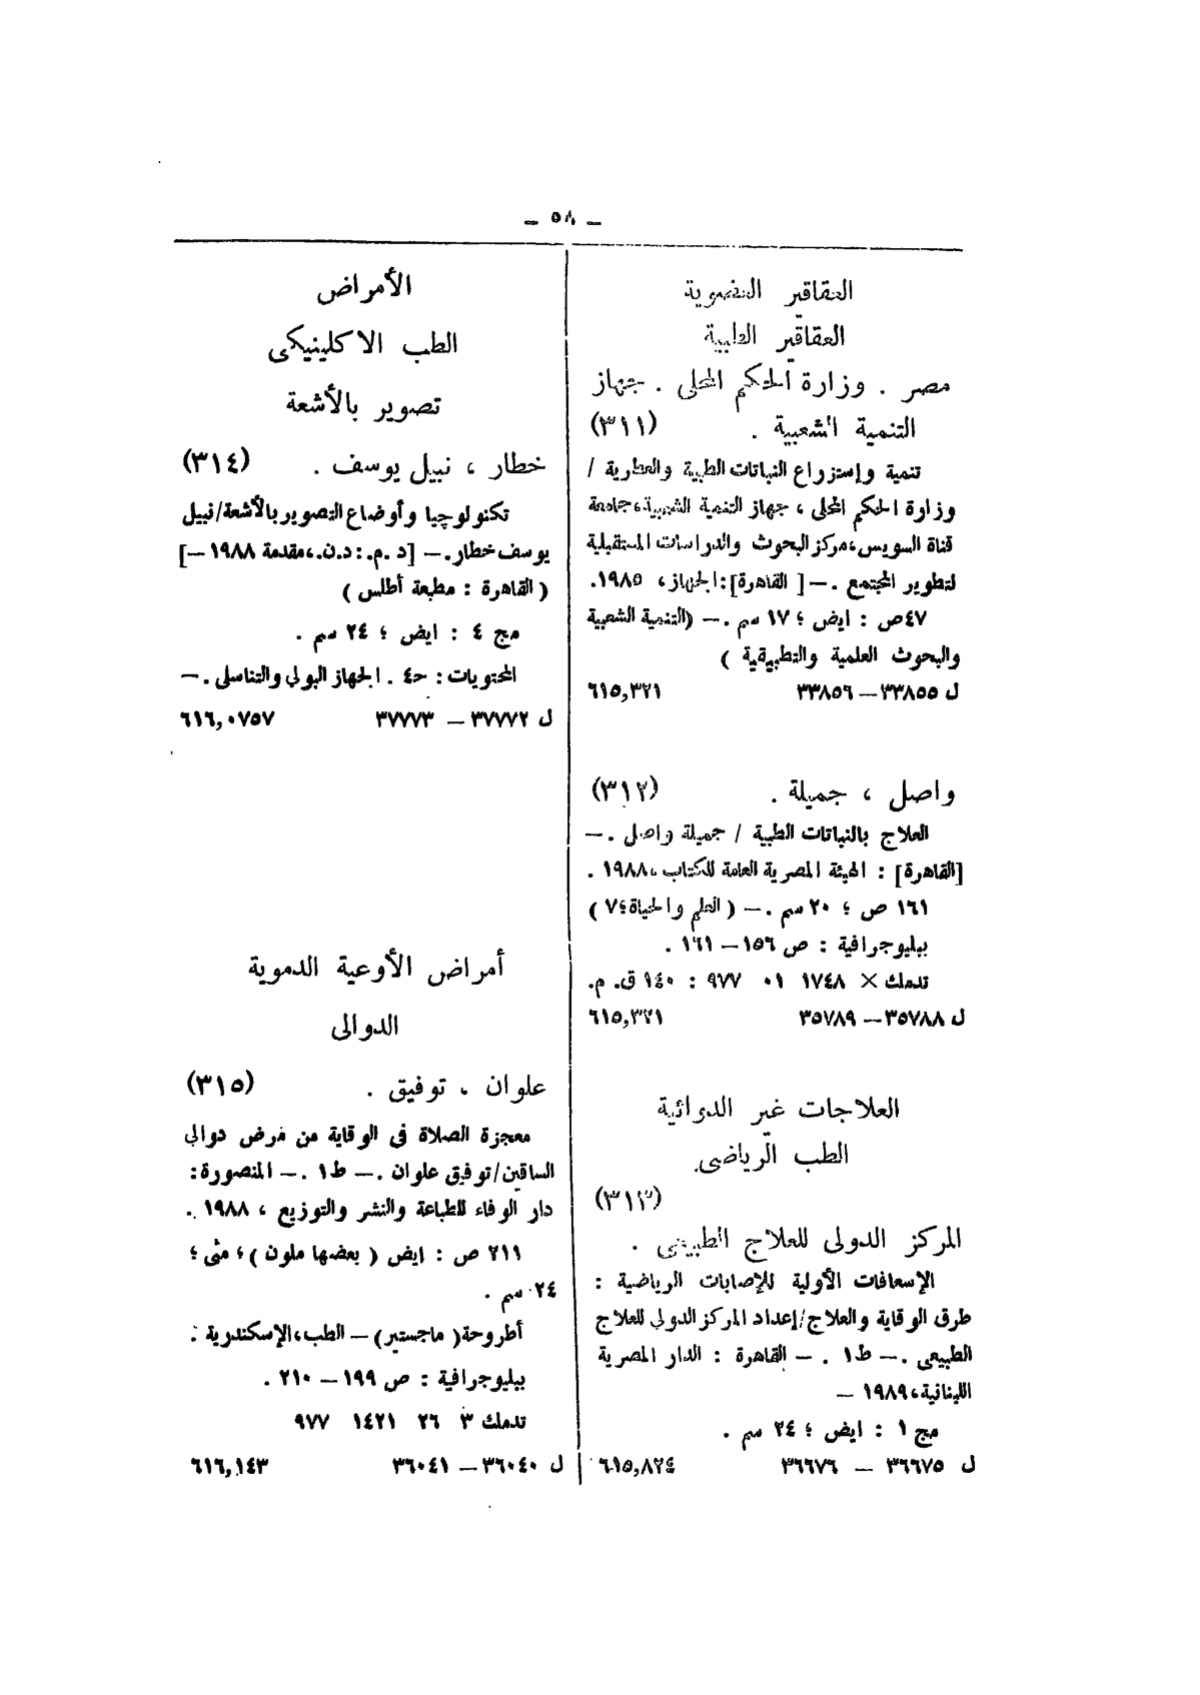 ــ ٥٨ ــ
العقاقير العضوية
العقاقير الطبية
مصر . وزارة الحكم المحلى . جهاز
التنمية الشعبية . (٣١١)
تنمية وإستزراع النباتات الطبية والعطارية /
وزارة الحكم المحلى ، جهاز التنمية الشعبية، جامعة
قناة السويس، مركز البحوث والدراسات المستقبلية
لتطوير المجتمع . ــ [ القاهرة]: الجهاز، ١٩٨٥.
٤٧ص : ايض ؛ ١٧ سم . ــ (التنمية الشعبية
والبحوث العلمية والتطبيقية )
ل ٣٣٨٥٥ ــ ٣٣٨٥٦ ٦١٥,٣٢١
واصل ، جميلة . (٣١٢)
العلاج بالنباتات الطبية / جميلة واصل . ــ
[القاهرة] : الهيئة المصرية العامة للكتاب، ١٩٨٨ .
١٦١ ص ؛ ٢٠ سم . ــ ( العلم والحياة؛ ٧ )
ببليوجرافية : ص ١٥٦ ــ ١٦١ .
تدمك × ١٧٤٨ ٠١ ٩٧٧ : ١٤٠ ق. م.
ل ٣٥٧٨٨ ــ ٣٥٧٨٩ ٦١٥,٣٢١
العلاجات غير الدوائية
الطب الرياضى
(٣١٣)
المركز الدولى للعلاج الطبيعى .
الإسعافات الأولية للإصابات الرياضية :
طرق الوقاية والعلاج/إعداد المركز الدولى للعلاج
الطبيعى . ــ ط١ . ــ القاهرة : الدار المصرية
اللبنانية، ١٩٨٩ ــ
مج ١ : ايض ؛ ٢٤ سم .
ل ٣٦٦٧٥ ــ ٣٦٦٧٦ ٦١٥,٨٢٤
الأمراض
الطب الاكلينيكى
تصوير بالأشعة
خطار ، نبيل يوسف . (٣١٤)
تكنولوجيا وأوضاع التصوير بالأشعة/نبيل
يوسف خطار. ــ [د .م.: د.ن.، مقدمة ١٩٨٨ ــ]
( القاهرة : مطبعة أطلس )
مج ٤ : ايض ؛ ٢٤ سم .
المحتويات : حـ٤ . الجهاز البولي والتناسلى . ــ
ل ٣٧٧٧٢ ــ ٣٧٧٧٣ ٦١٦,٠٧٥٧
أمراض الأوعية الدموية
الدوالى
علوان ، توفيق . (٣١٥)
معجزة الصلاة فى الوقاية من مرض دوالى
الساقين/توفيق علوان . ــ ط١ . ــ المنصورة :
دار الوفاء للطباعة والنشر والتوزيع ، ١٩٨٨ .
٢١١ ص : ايض ( بعضها ملون )؛ مثى ؛
٢٤ سم .
أطروحة( ماجستير) ــ الطب، الإسكندرية .
ببليوجرافية : ص ١٩٩ ــ ٢١٠ .
تدمك ٣ ٢٦ ١٤٢١ ٩٧٧
ل ٣٦٠٤٠ ــ ٣٦٠٤١ ٦١٦,١٤٣